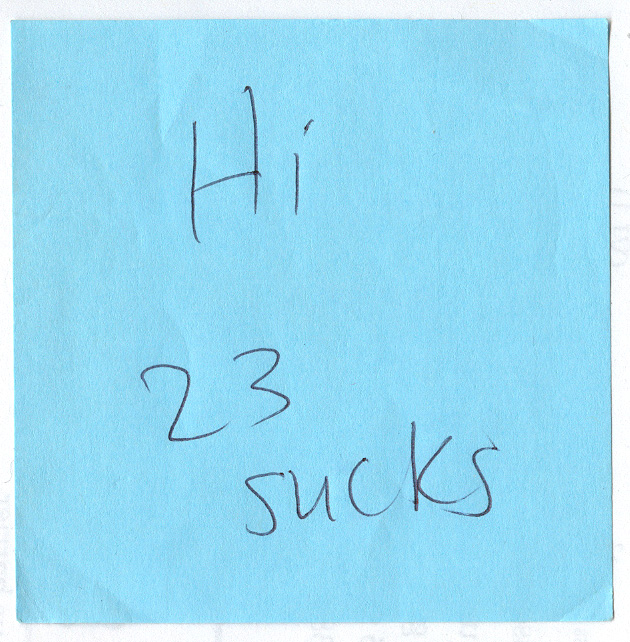 Hi
23
sucks